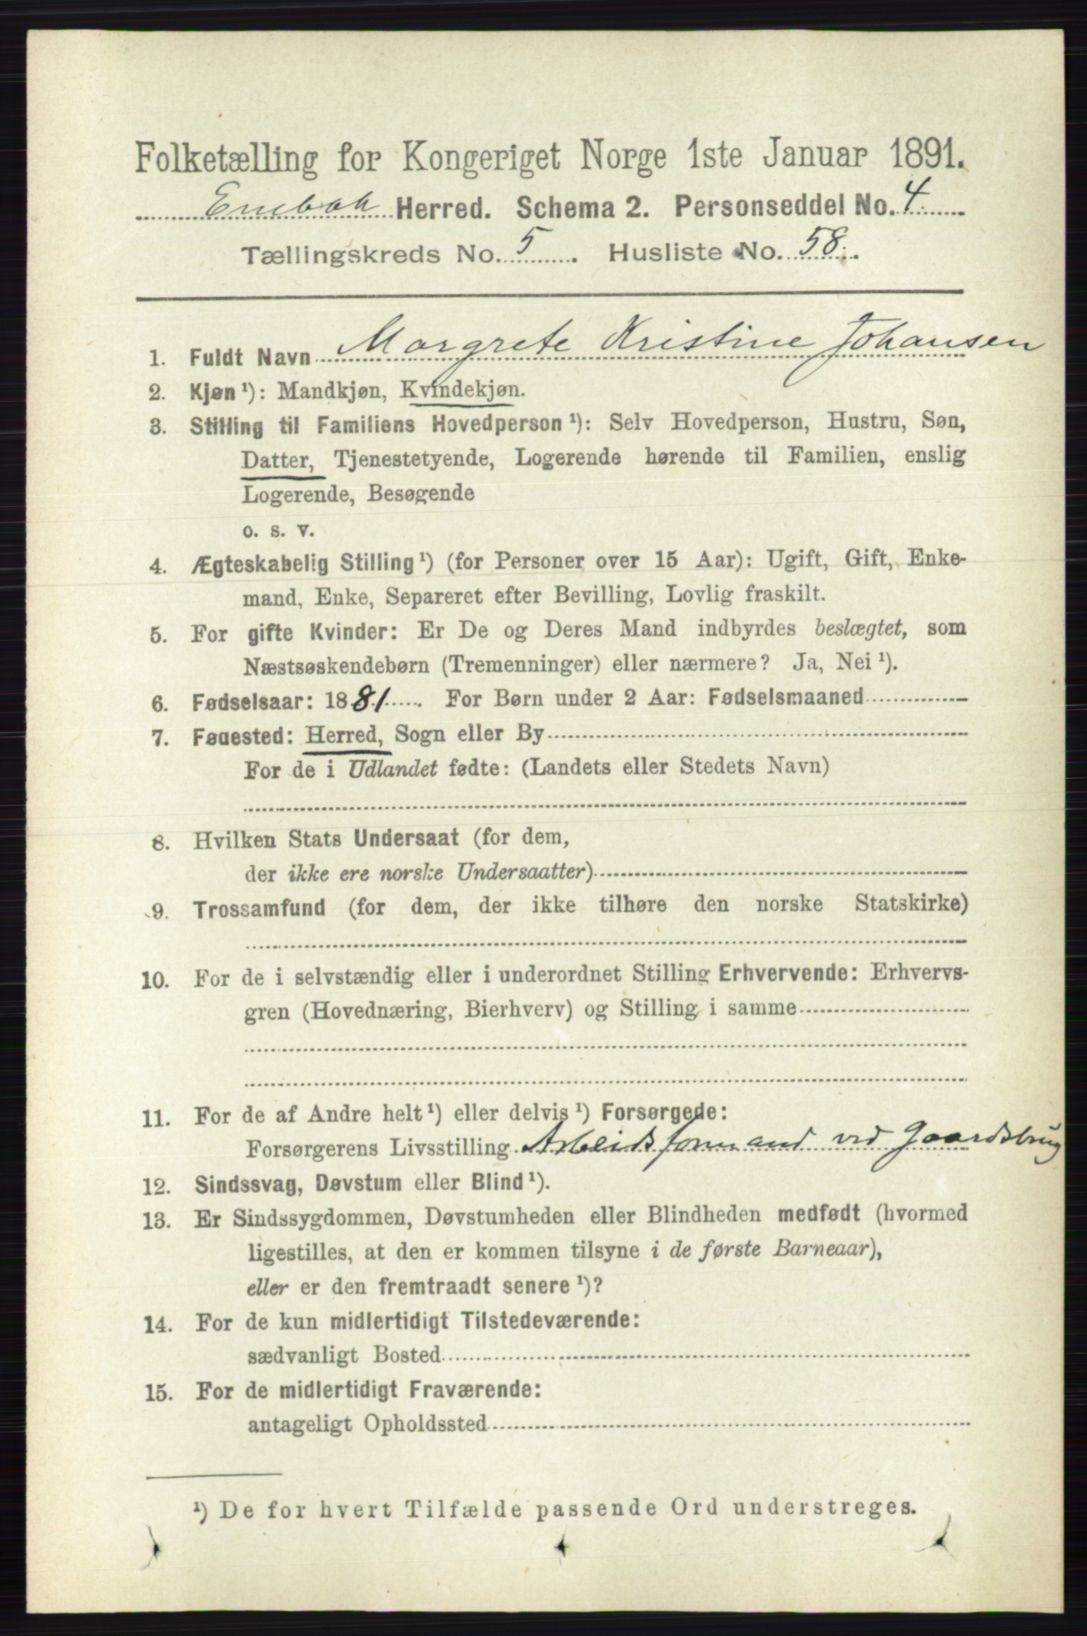 Folketælling for Kongeriget Norge 1ste Januar 1891.
Enebak Herred. Schema 2. Personseddel No. 4
Tællingskreds No. 5. Husliste No. 58.
1. Fuldt Navn Margrete Kristine Johansen
2. Kjøn ¹): Mandkjøn, Kvindekjøn.
3. Stilling til Familiens Hovedperson ¹): Selv Hovedperson, Hustru, Søn,
Datter, Tjenestetyende, Logerende hørende til Familien, enslig
Logerende, Besøgende
o. s. v.
4. Ægteskabelig Stilling ¹) (for Personer over 15 Aar): Ugift, Gift, Enke-
mand, Enke, Separeret efter Bevilling, Lovlig fraskilt.
5. For gifte Kvinder: Er De og Deres Mand indbyrdes beslægtet, som
Næstsøskendebørn (Tremenninger) eller nærmere? Ja, Nei ¹).
6. Fødselsaar: 1881. For Børn under 2 Aar: Fødselsmaaned
7. Fødested: Herred, Sogn eller By
For de i Udlandet fødte: (Landets eller Stedets Navn)
8. Hvilken Stats Undersaat (for dem,
der ikke ere norske Undersaatter)
9. Trossamfund (for dem, der ikke tilhøre den norske Statskirke)
10. For de i selvstændig eller i underordnet Stilling Erhvervende: Erhvervs-
gren (Hovednæring, Bierhverv) og Stilling i samme
11. For de af Andre helt ¹) eller delvis ¹) Forsørgede:
Forsørgerens Livsstilling Arbeidsformand ved Gaardsbrug
12. Sindssvag, Døvstum eller Blind ¹).
13. Er Sindssygdommen, Døvstumheden eller Blindheden medfødt (hvormed
ligestilles, at den er kommen tilsyne i de første Barneaar),
eller er den fremtraadt senere ¹)?
14. For de kun midlertidigt Tilstedeværende:
sædvanligt Bosted
15. For de midlertidigt Fraværende:
antageligt Opholdssted
¹) De for hvert Tilfælde passende Ord understreges.